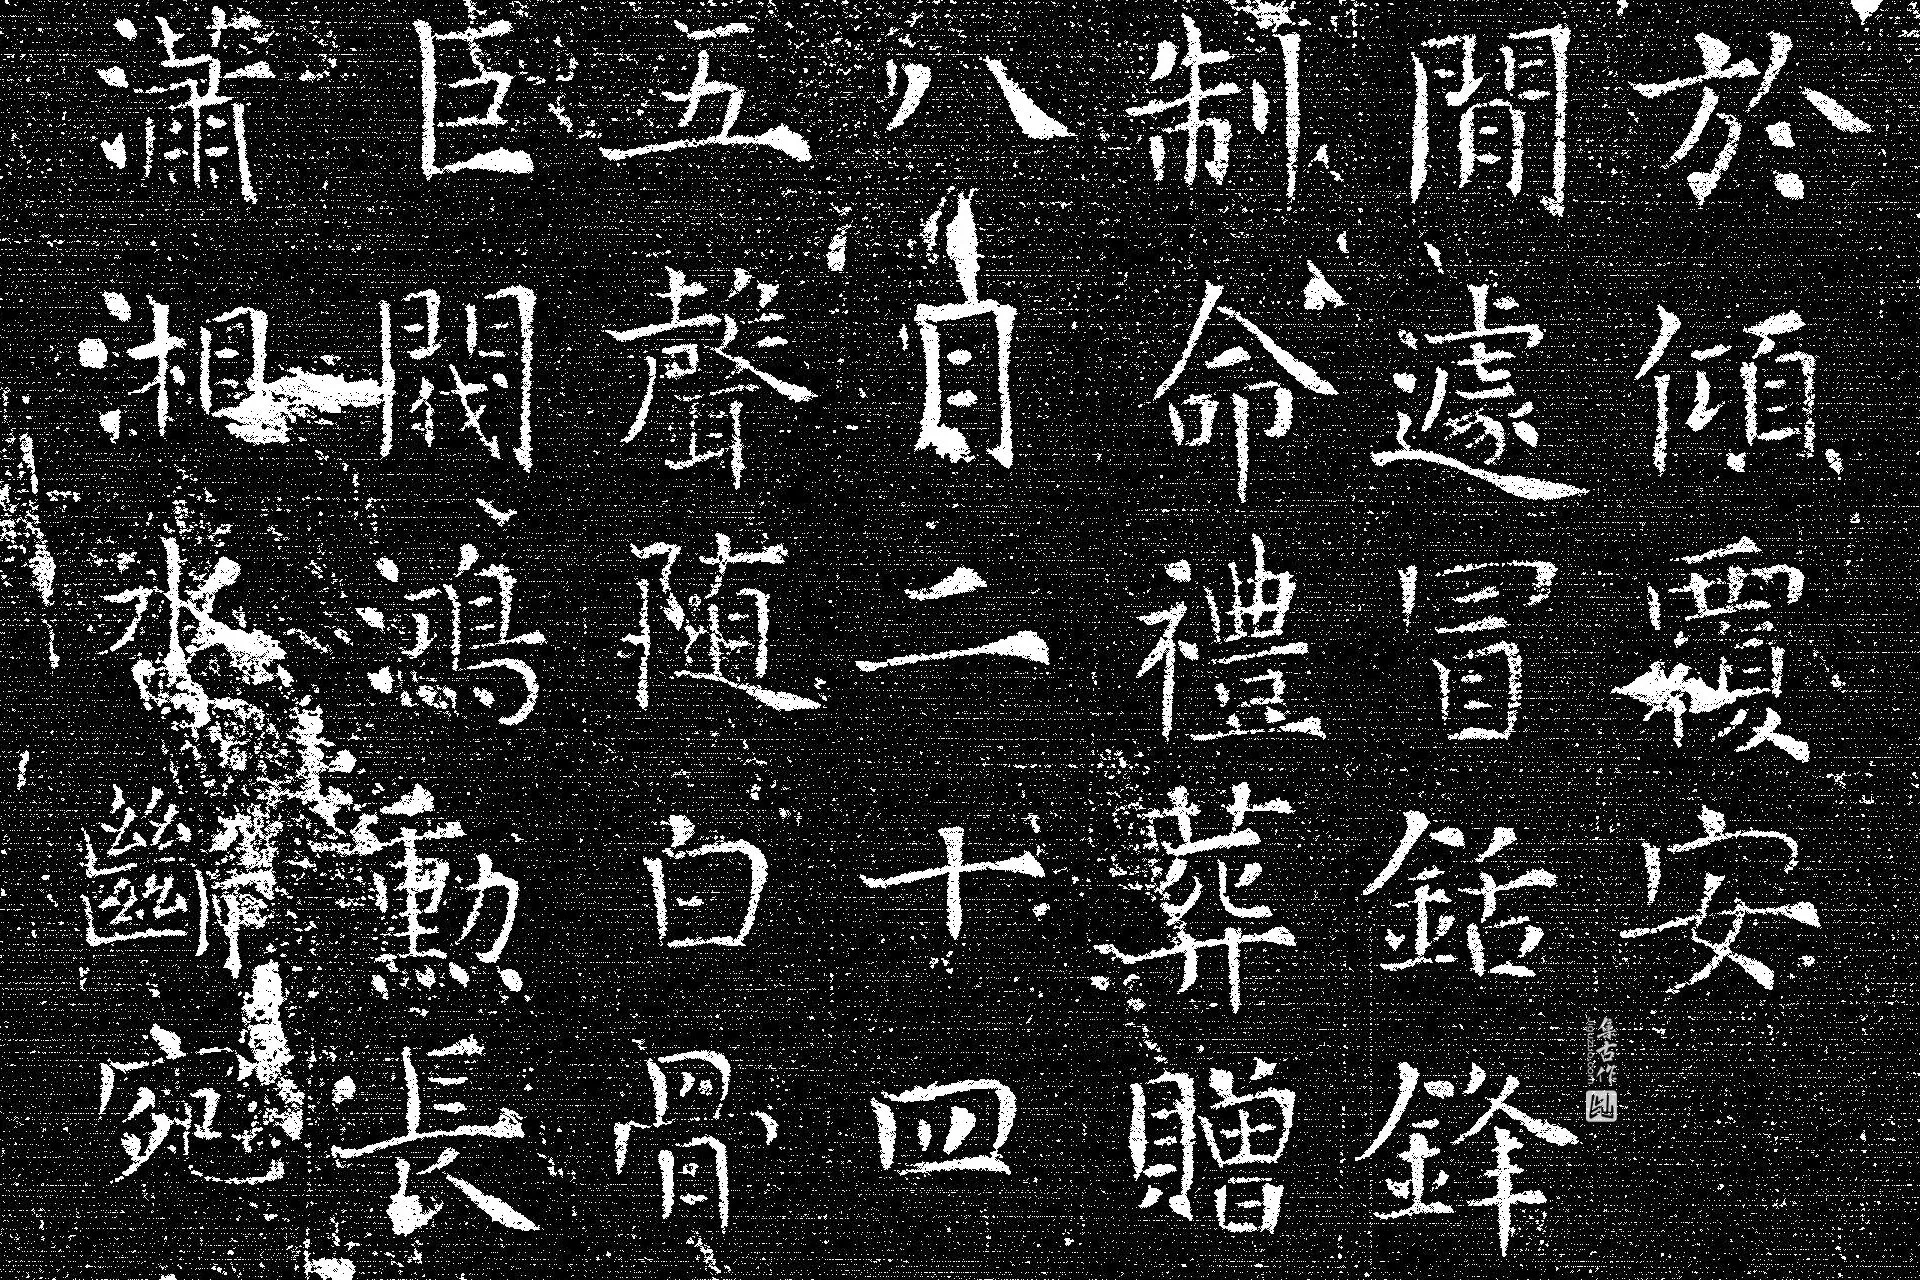 於傾覆安
間遽冒銛鋒
制命禮葬贈
八月二十四
五聲随白骨
臣閥鴻勲長
瀟湘水斷宛
集古作